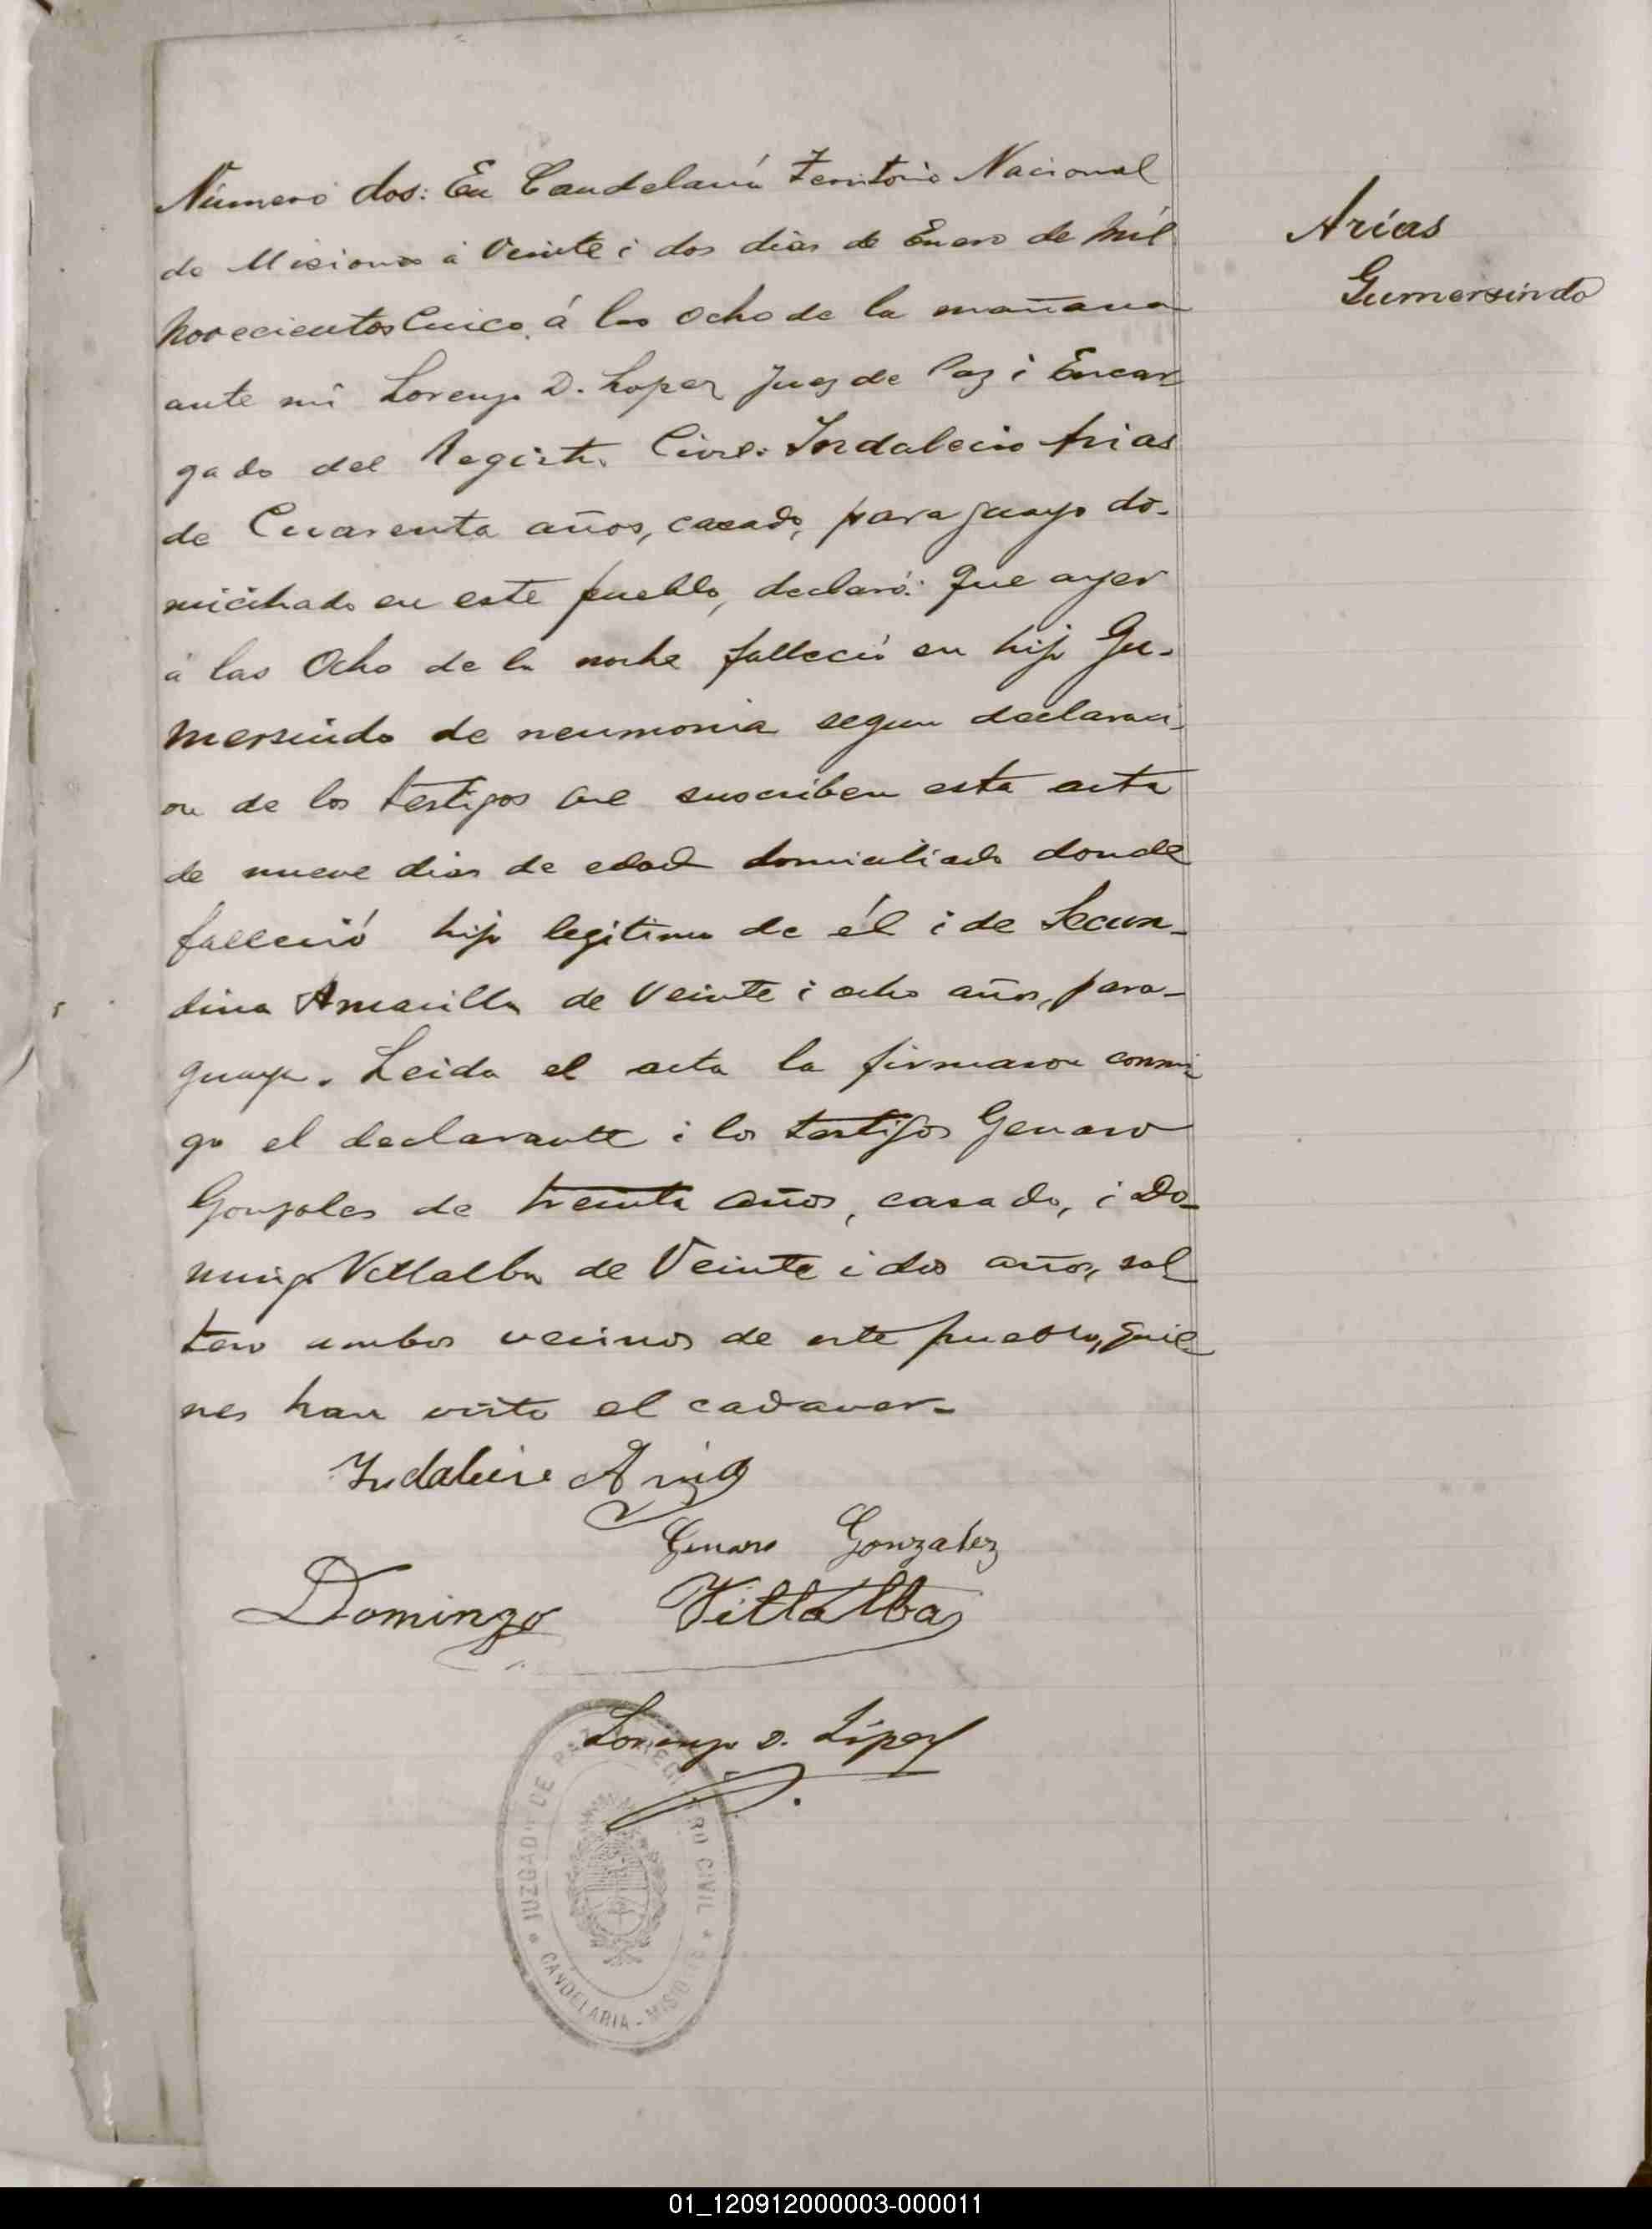 Número dos: En Candelaria Territorio Nacional
de Misiones á Veinte i dos dias de Enero de mil
novecientos Cinco, á las ocho de la mañana
ante mi Lorenzo D. Lopez Juez de Paz i Encar
gado del Registro Civil: Indalecio Arias
de Cuarenta años, casado, paraguayo do-
miciliado en este pueblo, declaró: Que ayer
á las Ocho de la noche falleció su hijo Gu-
mersindo de neumonia segun declaraci-
on de los testigos que suscriben esta acta
de nueve dias de edad domiciliado donde
falleció hijo legitimo de él i de Secun-
dina Amarilla de Veinte i ocho años, para-
guaya. Leida el acta la firmaron conmi-
go el declarante i los testigos Genaro
Gonzales de treinta años, casado, i Do-
mingo Villalba de Veinte i dos años, sol
tero ambos vecinos de este pueblo, quie-
nes han visto el cadaver.-
Arias
Gumersindo
Indalecio Arias
Genaro Gonzalez
Domingo Villalba
Lorenzo D. López
JUZGADO DE PAZ REGISTRO CIVIL
CANDELARIA - MISIONES
01_120912000003-000011